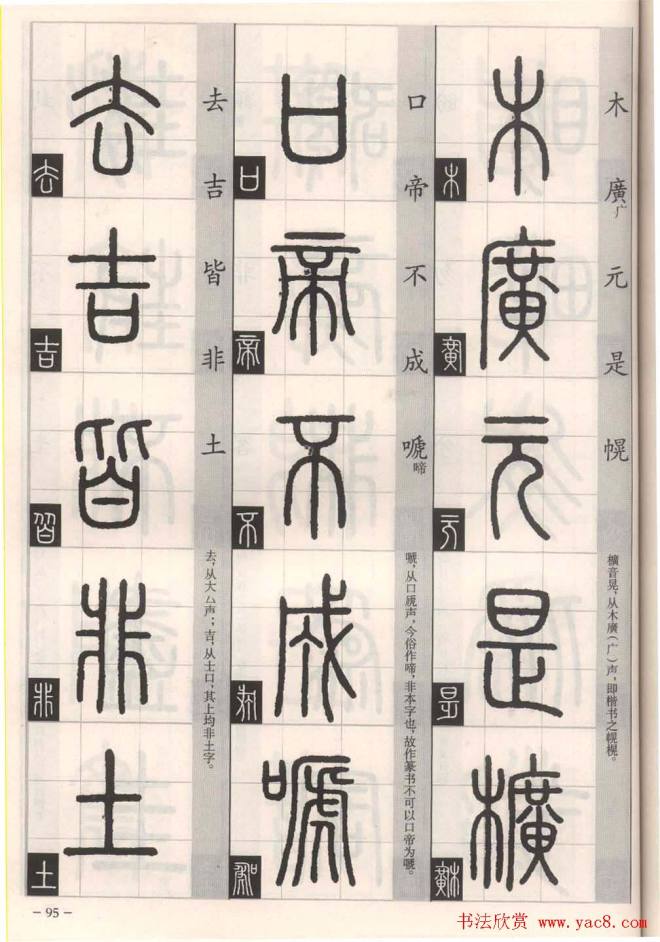 木廣广元是幌
木
廣
元
是
櫎
櫎音晃，从木廣（广）声，即楷书之幌榥。
口帝不成嗁啼
口
帝
不
成
嗁
嗁，从口虒声，今俗作啼，非本字也，故作篆书不可以口帝为嗁。
去吉皆非土
去
吉
皆
非
土
去，从大厶声；吉，从士口，其上均非土字。
－95－
书法欣赏 www.yac8.com